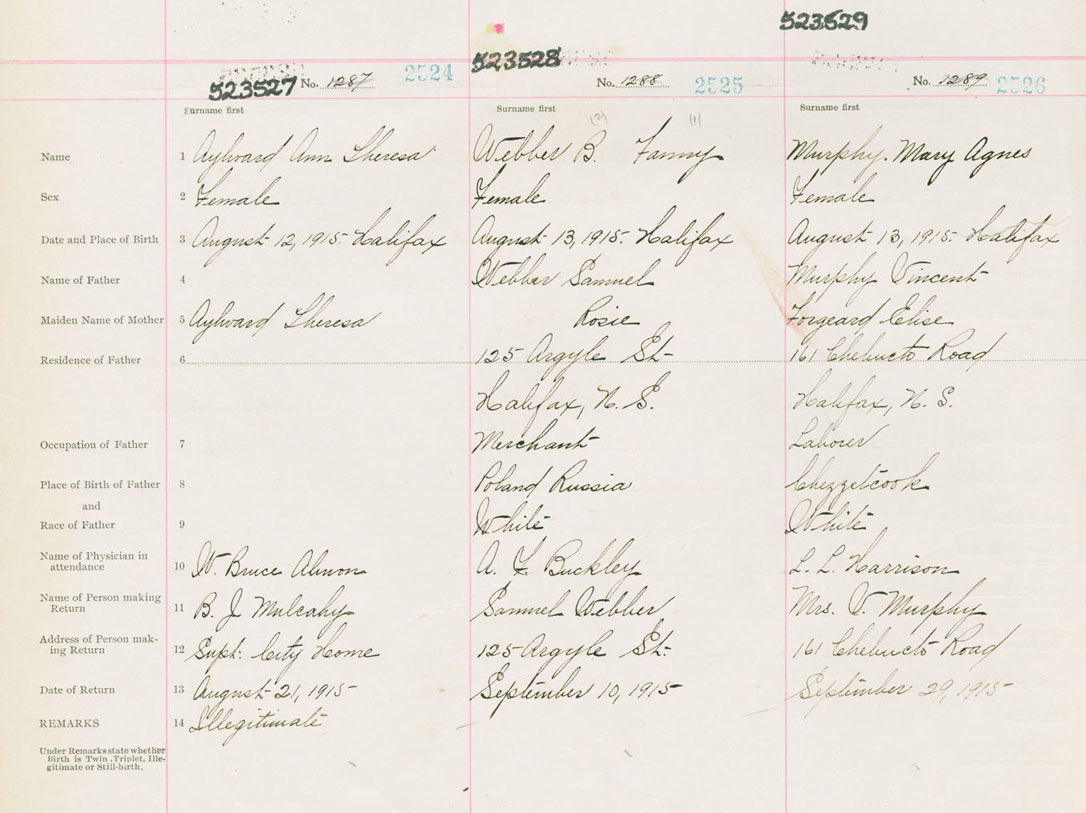 523529
523528
523527 No. 1287 2524
No. 1288 2525
No. 1289 2526
Surname first
Surname first
Surname first
(2) (1)
Name 1 Aylward Ann Theresa Webber B. Fanny Murphy. Mary Agnes
Sex 2 Female Female Female
Date and Place of Birth 3 August 12, 1915. Halifax August 13, 1915. Halifax August 13, 1915. Halifax
Name of Father 4 Webber Samuel Murphy Vincent
Maiden Name of Mother 5 Aylward Theresa Rosie Forgeard Elise
Residence of Father 6 125 Argyle St. 161 Chebucto Road
Halifax, N. S. Halifax, N. S.
Occupation of Father 7 Merchant Laborer
Place of Birth of Father 8 Poland Russia Chezzetcook
and
Race of Father 9 White White
Name of Physician in
attendance 10 W. Bruce Almon A. F. Buckley L. L. Harrison
Name of Person making
Return 11 B. J Mulcahy Samuel Webber Mrs. V. Murphy
Address of Person mak-
ing Return 12 Supt. City Home 125 Argyle St. 161 Chebucto Road
Date of Return 13 August 21, 1915 September 10, 1915 September 29, 1915
REMARKS 14 Illegitimate
Under Remarks state whether
Birth is Twin, Triplet, Ille-
gitimate or Still-birth.